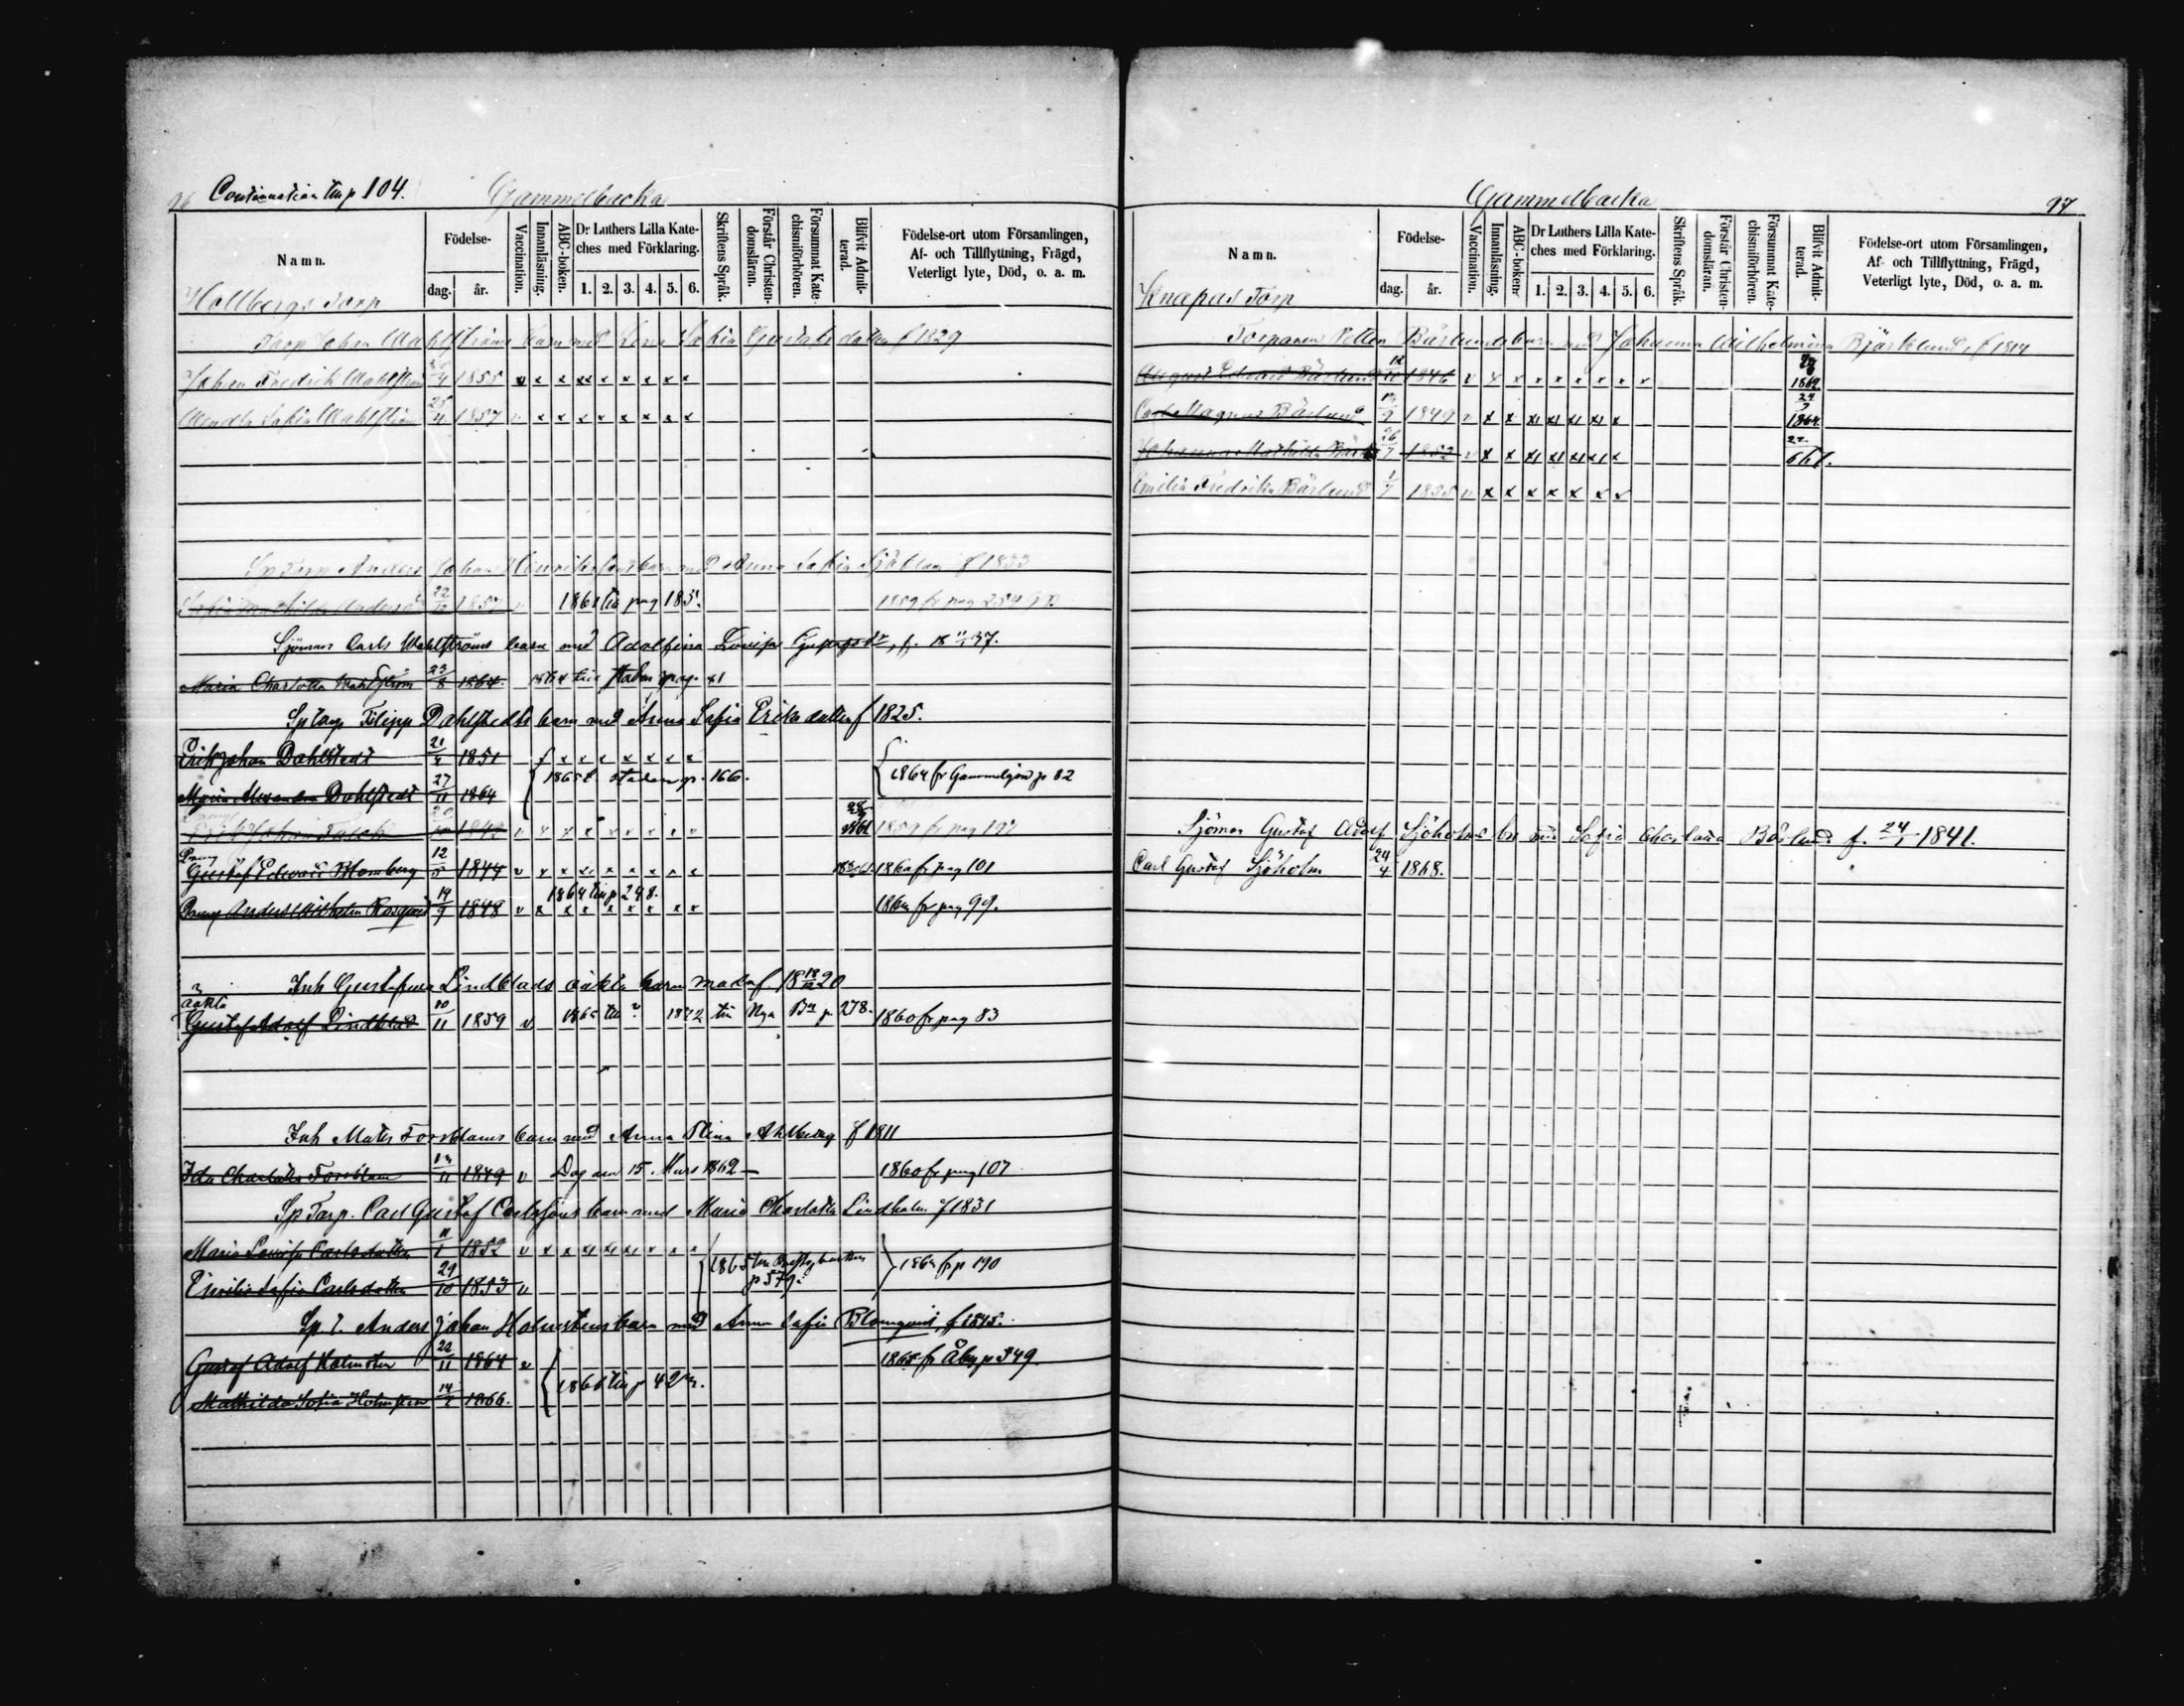 96 Continuation till p 104. Gammelbacka
Namn. Födelse- dag. år. Vaccination. Innanläsning. ABC-boken. Dr Luthers Lilla Kateches med Förklaring. 1. 2. 3. 4. 5. 6. Skriftens Språk. Förstår Christendomsläran. Försummat Katechismiförhören. Blifvit Admitterad. Födelse-ort utom Församlingen, Af- och Tillflyttning, Frägd, Veterligt lyte, Död, o. a. m.
Hallbergs Torp
Torp Johan Wahlströms barn med Lena Sofia Gustafsdotter f 1829
Johan Fredrik Wahlström 1855 x x x x x x x x
Sofia Wahlström 1857 x x x x x x x x
Sp Torp Anders Johan Henrikssons barn med Anna Sofia Sjöblom f 1833
22 1857 v 1861 till pag 185. 1859 fr pag 254
Sjöman Carls Wahlströms barn med Adolfina Lovisa , f. 18 37.
Maria Charlotta Wahlström 23/8 1864. 1864 till staden pag. 81
Sp torp Filipp Dahlstedts barn med Anna Sofia Ericsdotter f 1825.
Erik Johan Dahlstedt 21 1851 x x x x x x x
1865 t. staden p. 166. 1864 fr Gammelgård p 82
Maria Alexandra Dahlstedt 27/11 1864
Erik Johan 1842 v x x x x x x x 1859 fr pag 192
Dräng Gustaf Edvard Blomberg 12 1844 v x x x x x x x x 1860 fr pag 101
1864 till p 298.
Dräng Anders Wilhelm Rosqvist 19/9 1848 v x x x x x x x x 1864 fr pag 99.
Inh Gustafva Lindblads oäkta barn mod. f 18 18/12 20
oäkta
Gustaf Adolf Lindblad 10/11 1859 v 1865 till 1872 till Nya Bn p. 278. 1860 fr pag 83
Inh Mats Forsbloms barn med Anna Stina Ahlberg f 1811
Ida Charlotta Forsblom 1849 v Dog den 15. Mars 1862 — 1860 fr pag 107
Sp Torp. Carl Gustaf Carlssons barn med Maria Charlotta Lindholm f 1831
Maria Lovisa Carlsdotter 11 1852 v x x x x x x x x
1865 till p 579. 1864 fr p 190
Emilia Sofia Carlsdotter 29/10 1853 v
Sp t. Anders Johan Holmstens barn med Anna Sofia Blomqvist f 1845.
Gustaf Adolf Holmsten 22/11 1864 v 1865 fr Åby p 349.
1866 till p 42
Mathilda Sofia Holmsten 14 1866.
Gammelbacka 97
Namn. Födelse- dag. år. Vaccination. Innanläsning. ABC-boken. Dr Luthers Lilla Kateches med Förklaring. 1. 2. 3. 4. 5. 6. Skriftens Språk. Förstår Christendomsläran. Försummat Katechismiförhören. Blifvit Admitterad. Födelse-ort utom Församlingen, Af- och Tillflyttning, Frägd, Veterligt lyte, Död, o. a. m.
Knapas Torp
Torparen Petter Bärlunds barn med Johanna Wilhelmina Björklund, f 1814
August Edvard Bärlund 12 1846 v x x x x x x x x 1862.
Carl Magnus Bärlund 1849 v x x x x x x x 1864.
Johanna Mathilda 26/7 1852 v x x x x x x x
Emilia Fredrika Bärlund 1/7 1855 v x x x x x x x
Sjöman Gustaf Adolf Sjöholms barn med Sofia Charlotta Bärlund f. 24/1 1841.
Carl Gustaf Sjöholm 24/4 1868.